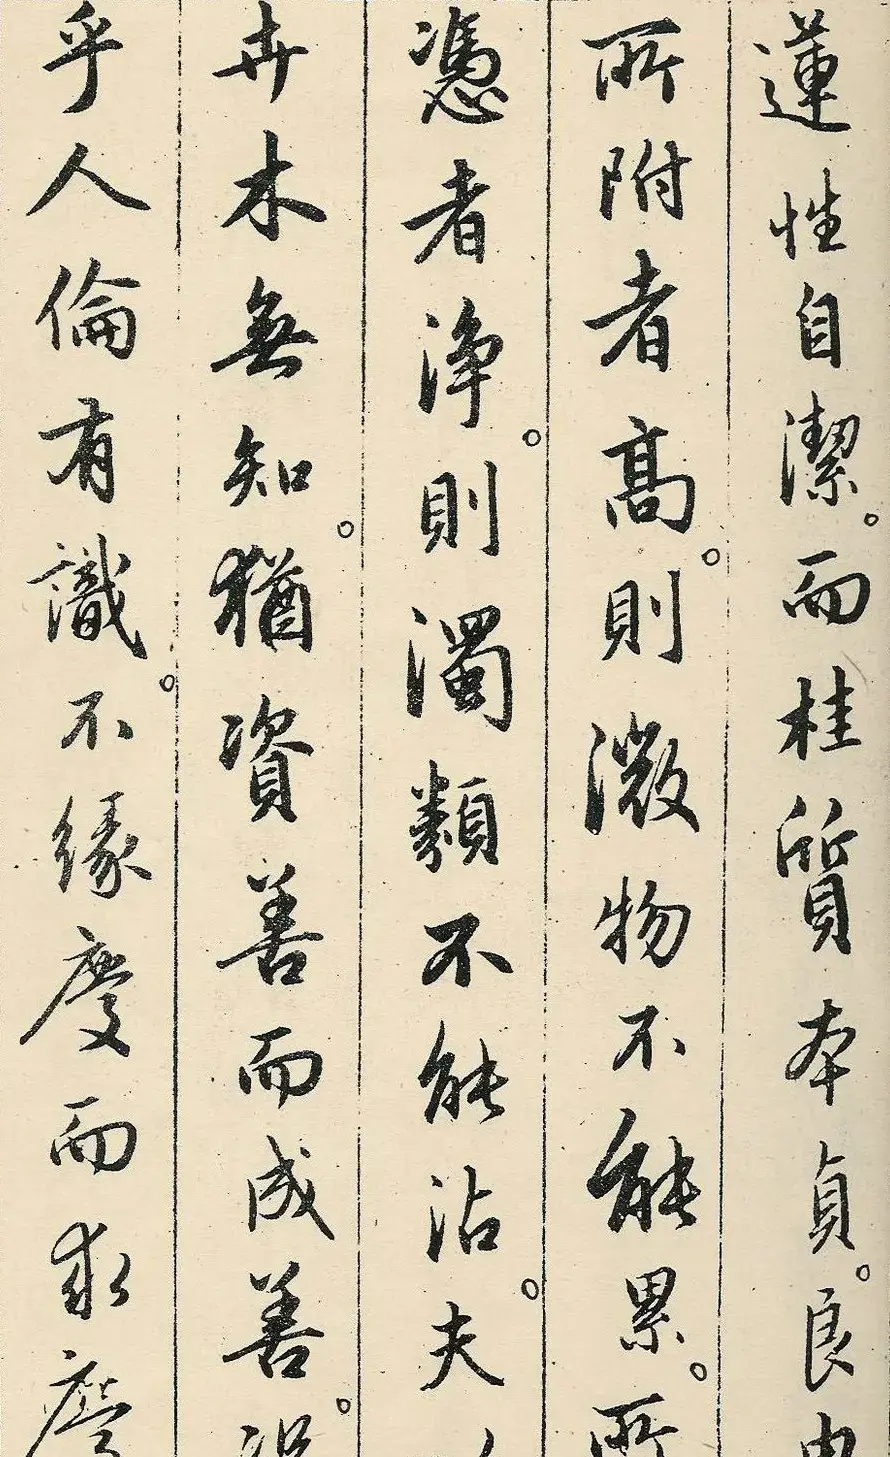 蓮性自潔。而桂質本貞。良由
所附者高。則微物不能累。所
憑者淨。則濁類不能沾。夫
卉木無知。猶資善而成善。況
乎人倫有識。不緣慶而求慶